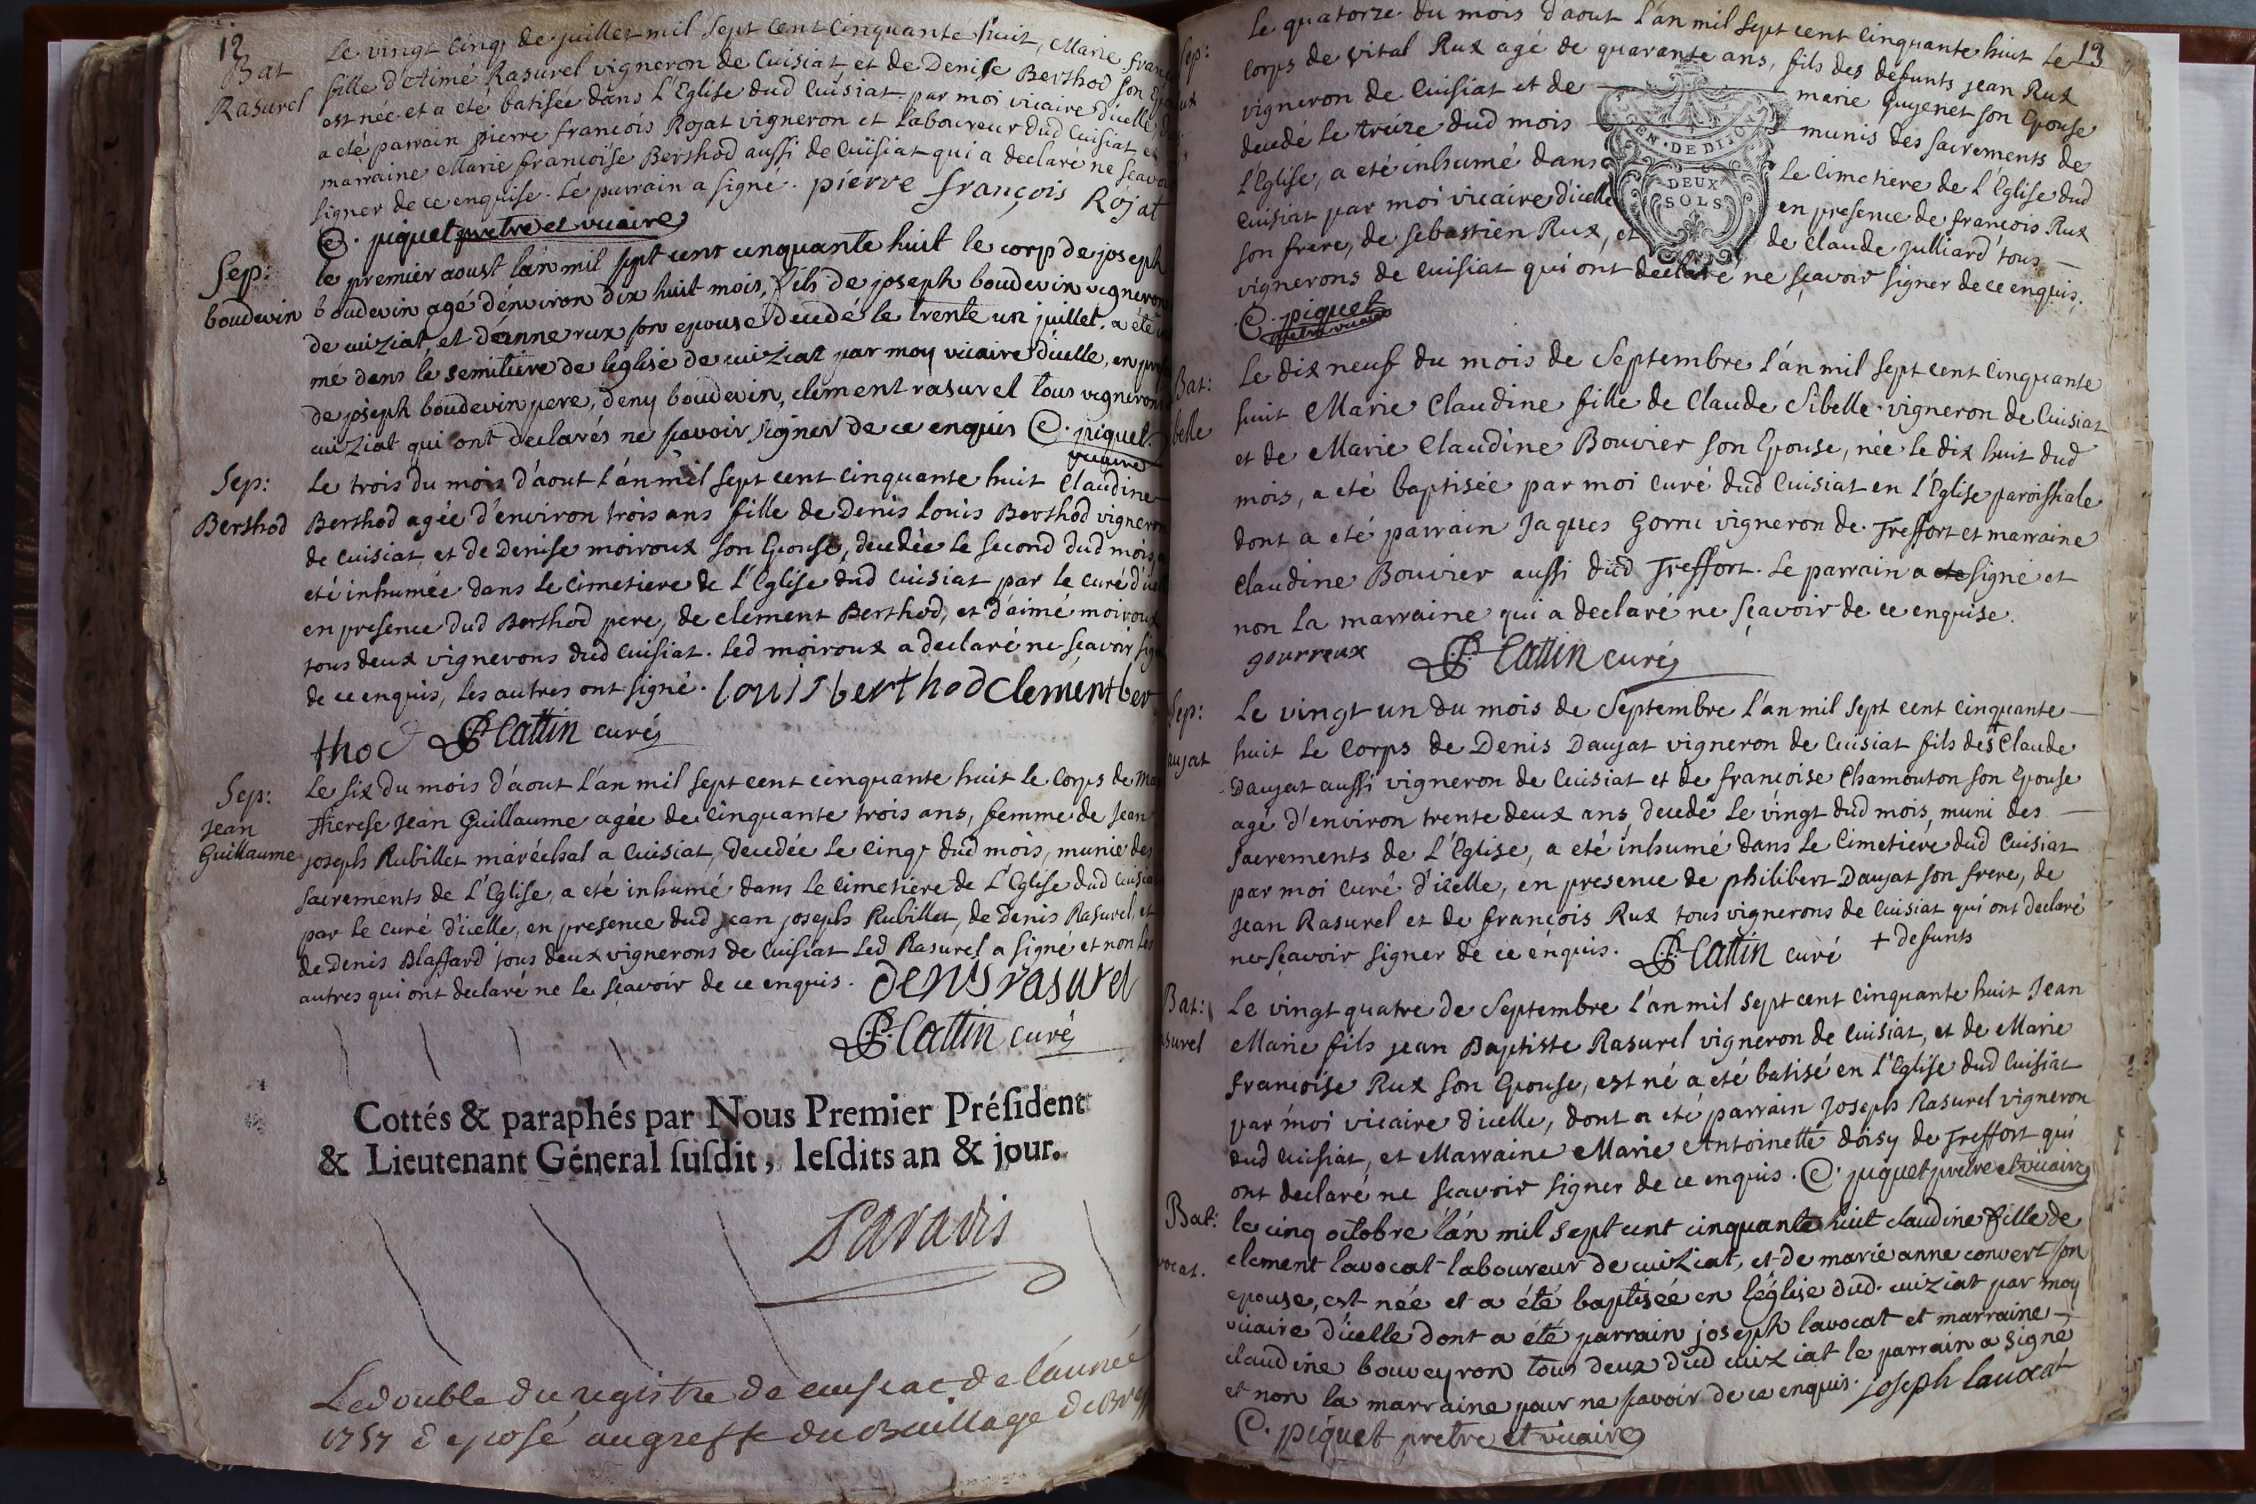 12
Bat
Rasurel
Le vingt cinq de juillet mil sept cent cinquante huit, Marie
fille d'Aimé Rasurel vigneron de Cuisiat et de Denise Berthod son
est née et a eté batisée dans l'Eglise dud Cuisiat par moi vicaire d'icelle
a eté parrain pierre francois Rojat vigneron et laboureur dud Cuisiat et
marraine Marie francoise Berthod aussi de Cuisiat qui a declaré ne
signer de ce enquise. Le parrain a signé. pierre françois Rojat
C. piquet pretre et vicaire
Sep:
boudevin
le premier aoust l'an mil sept cent cinquante huit le corp de joseph
boudevin agé d'environ dix huit mois, fils de joseph boudevin vigneron
de cuiziat et d'anne rux son epouse decedé le trente un juillet, a été
mé dans le semitiere de l'eglise de cuiziat par moy vicaire d'icelle, en
de joseph boudevin pere, deny boudevin, clement rasurel tous vignerons
cuiziat qui ont declarés ne scavoir signer de ce enquis C. piquet
vicaire
Sep:
Berthod
Le trois du mois d'aout l'an mil sept cent cinquante huit Claudine
Berthod agée d'environ trois ans fille de Denis Louis Berthod vigneron
de Cuisiat et de Denise moiroux son Epouse, decedée le second dud mois
eté inhumée dans le Cimetiere de l'Eglise dud Cuisiat par le curé
en presence dud Berthod pere, de clement Berthod, et d'aimé moiroux
tous deux vignerons dud Cuisiat. Led moiroux a declaré ne sçavoir
de ce enquis, les autres ont signé. louis berthod Clement ber
thod Cattin curé
Sep:
Jean
Guillaume
Le six du mois d'aout l'an mil sept cent cinquante huit le Corps de
Therese Jean Guillaume agée de Cinquante trois ans, femme de Jean
joseph Rubillet maréchal a Cuisiat, decedée le Cinq dud mois, munie des
sacrements de l'Eglise, a eté inhumé dans le Cimetiere de l'Eglise dud
par le curé d'icelle, en presence dud jean joseph Rubillet, de Denis Rasurel, et
de Denis Blaffard tous deux vignerons de Cuisiat Led Rasurel a signé et non les
autres qui ont declaré ne le sçavoir de ce enquis. denis rasurel
Cattin curé
Cottés & paraphés par Nous Premier Préſident
& Lieutenant Géneral ſuſdit, leſdits an & jour.
Paradis
Le double du registre de cuiseat de l'année
1757 deposé au greffe du Bailliage de
13
Sep:
Le quatorze du mois d'aout l'an mil sept cent cinquante huit le
Corps de Vital Rux agé de quarante ans, fils des defunts jean Rux
vigneron de Cuisiat et de marie Guyenet son Epouse
decedé le treize dud mois munis des sacrements de
l'Eglise, a eté inhumé dans le Cimetiere de l'Eglise dud
Cuisiat par moi vicaire d'icelle en presence de francois Rux
son frere, de Sebastien Rux, et de Claude Julliard tous
vignerons de Cuisiat qui ont declaré ne sçavoir signer de ce enquis.
GEN. DE DIJON
DEUX
SOLS
C. piquet
pretre vicaire
Bat:
belle
Le dix neuf du mois de Septembre l'an mil sept cent Cinquante
huit Marie Claudine fille de Claude Sibelle vigneron de Cuisiat
et de Marie Claudine Bouvier son Epouse, née le dix huit dud
mois, a eté baptisée par moi curé dud Cuisiat en l'Eglise paroissiale
dont a eté parrain Jaques Gorru vigneron de Treffort et marraine
Claudine Bouvier aussi dud Treffort. Le parrain a ete signé et
non la marraine qui a declaré ne sçavoir de ce enquise.
gourreux Cattin curé
Sep:
aujat
Le vingt un du mois de Septembre l'an mil sept cent cinquante
huit le Corps de Denis Daujat vigneron de Cuisiat fils des + Claude
Daujat aussi vigneron de Cuisiat et de francoise Chamouton son Epouse
agé d'environ trente deux ans, decedé le vingt dud mois, muni des
sacrements de l'Eglise, a eté inhumé dans le Cimetiere dud Cuisiat
par moi curé d'icelle, en presence de philibert Daujat son frere, de
Jean Rasurel et de francois Rux tous vignerons de Cuisiat qui ont declaré
ne sçavoir signer de ce enquis. Cattin curé + defunts
Bat:
surel
Le vingt quatre de Septembre l'an mil sept cent cinquante huit Jean
Marie fils jean Baptiste Rasurel vigneron de Cuisiat, et de Marie
francoise Rux son Epouse, est né a eté batisé en l'Eglise dud Cuisiat
par moi vicaire d'icelle, dont a eté parrain Joseph Rasurel vigneron
dud Cuisiat, et Marraine Marie Antoinette doisy de Treffort qui
ont declaré ne sçavoir signer de ce enquis. C. piquet pretre et vicaire
Bat:
vocat.
le cinq octobre l'an mil sept cent cinquante huit claudine fille de
clement lavocat laboureur de cuiziat, et de marie anne convert son
epouse, est née et a été baptisée en l'église dud. cuiziat par moy
vicaire d'icelle dont a été parrain joseph lavocat et marraine
claudine bouveyron tous deux dud cuiziat le parrain a signé
et non la marraine pour ne savoir de ce enquis. joseph lauoxat
C. piquet pretre et vicaire